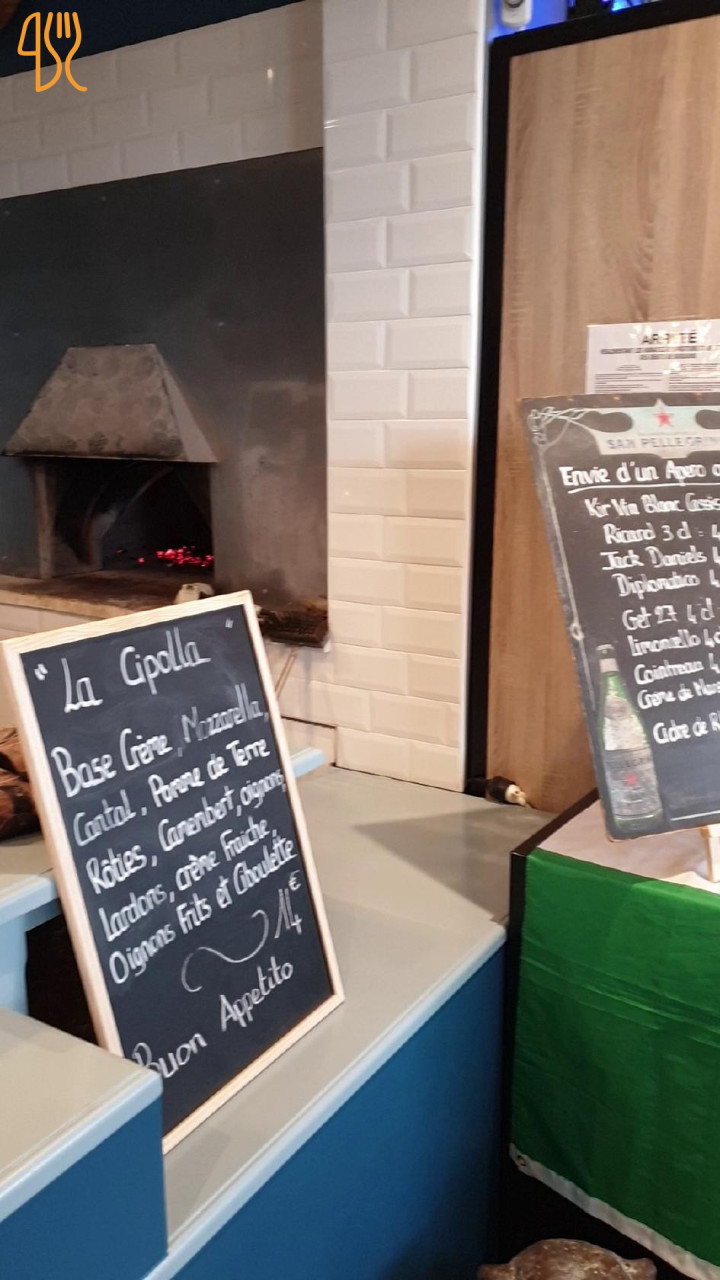 "La Cipolla"
Base Crème, Mozzarella,
Cantal, Pomme de Terre
Rôties, Camenbert, oignons,
Lardons, crème Fraiche,
Oignons Frits et Ciboulette
14€
Buon Appetito
ARRETÉ
SAN PELLEGRIN
Envie d'un Apero
Kir Vin Blanc Cassis
Ricard 3 cl : 4
Jack Daniels 4
Diplomatico 4
Get 27 4 cl
Limoncello 4 c
Cointreau 4
Crème de
Cidre de